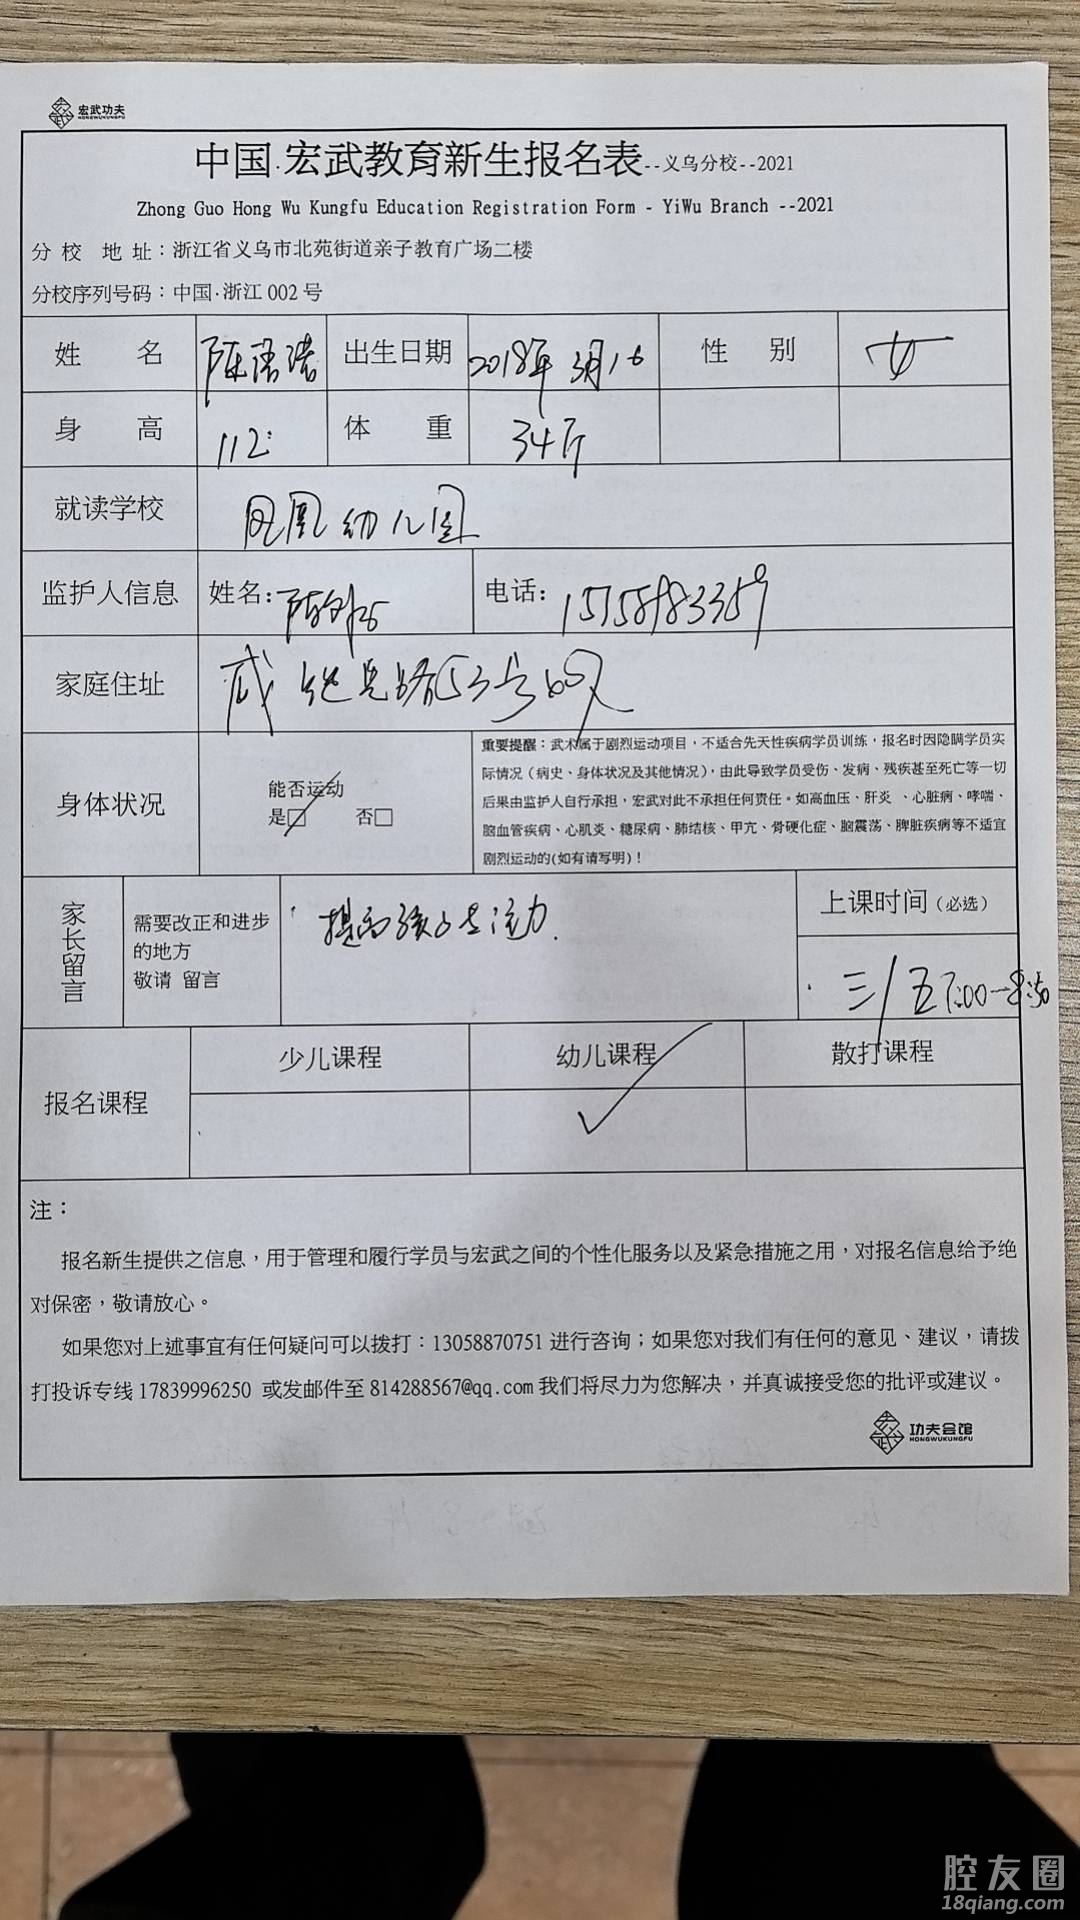 宏武功夫
HONGWUKUNGFU
中国·宏武教育新生报名表--义乌分校--2021
Zhong Guo Hong Wu Kungfu Education Registration Form - YiWu Branch --2021
分校 地址：浙江省义乌市北苑街道亲子教育广场二楼
分校序列号码：中国·浙江 002 号
姓 名 陈语 出生日期 2018年3月16 性 别 女
身 高 112 体 重 34斤
就读学校 凤凰幼儿园
监护人信息 姓名： 陈 电话：
家庭住址 53号
身体状况 能否运动
是□ 否□
重要提醒：武术属于剧烈运动项目，不适合先天性疾病学员训练，报名时因隐瞒学员实
际情况（病史、身体状况及其他情况），由此导致学员受伤、发病、残疾甚至死亡等一切
后果由监护人自行承担，宏武对此不承担任何责任。如高血压、肝炎 、心脏病、哮喘、
脑血管疾病、心肌炎、糖尿病、肺结核、甲亢、骨硬化症、脑震荡、脾脏疾病等不适宜
剧烈运动的(如有请写明)！
家长留言
需要改正和进步
的地方
敬请 留言
提高孩
上课时间（必选）
三/五7:00-8:30
报名课程 少儿课程 幼儿课程 散打课程
注：
报名新生提供之信息，用于管理和履行学员与宏武之间的个性化服务以及紧急措施之用，对报名信息给予绝
对保密，敬请放心。
如果您对上述事宜有任何疑问可以拨打：13058870751 进行咨询；如果您对我们有任何的意见、建议，请拨
打投诉专线 17839996250 或发邮件至 814288567@qq.com 我们将尽力为您解决，并真诚接受您的批评或建议。
功夫会馆
HONGWUKUNGFU
腔友圈
18qiang.com